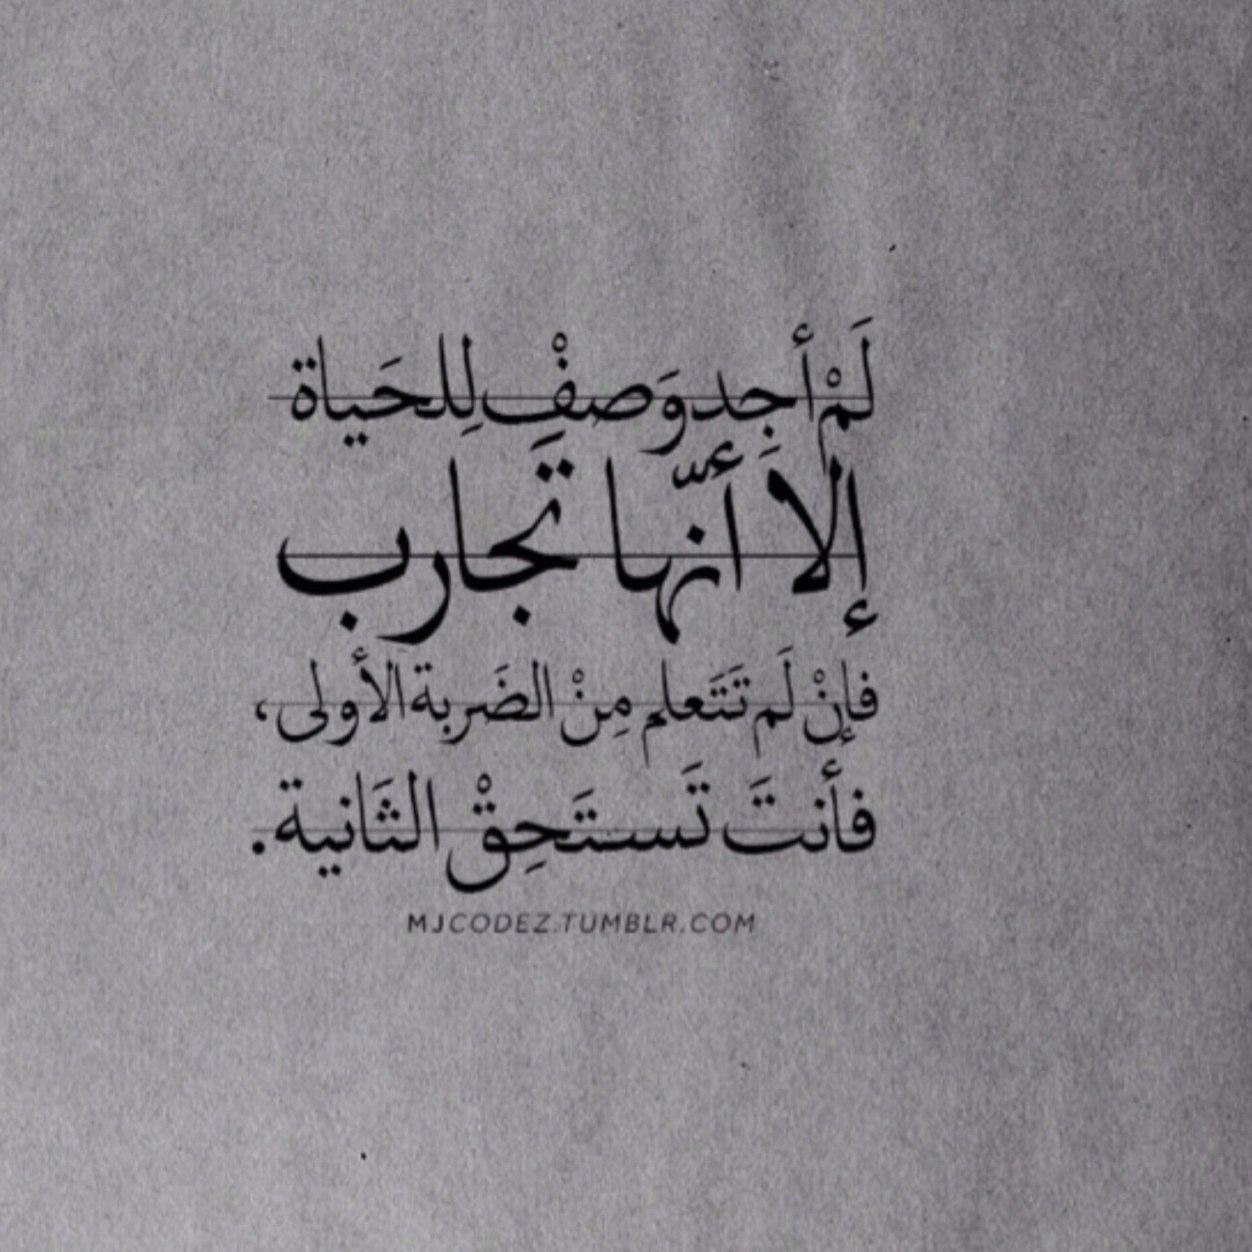 لَمْ أجِد وَصفْ لِلحَياة
إلا أنّها تَجارب
فإنْ لَم تَتَعلم مِنْ الضَربة الأولى،
فأنتَ تَستَحِقْ الثَانية.
MJCODEZ.TUMBLR.COM